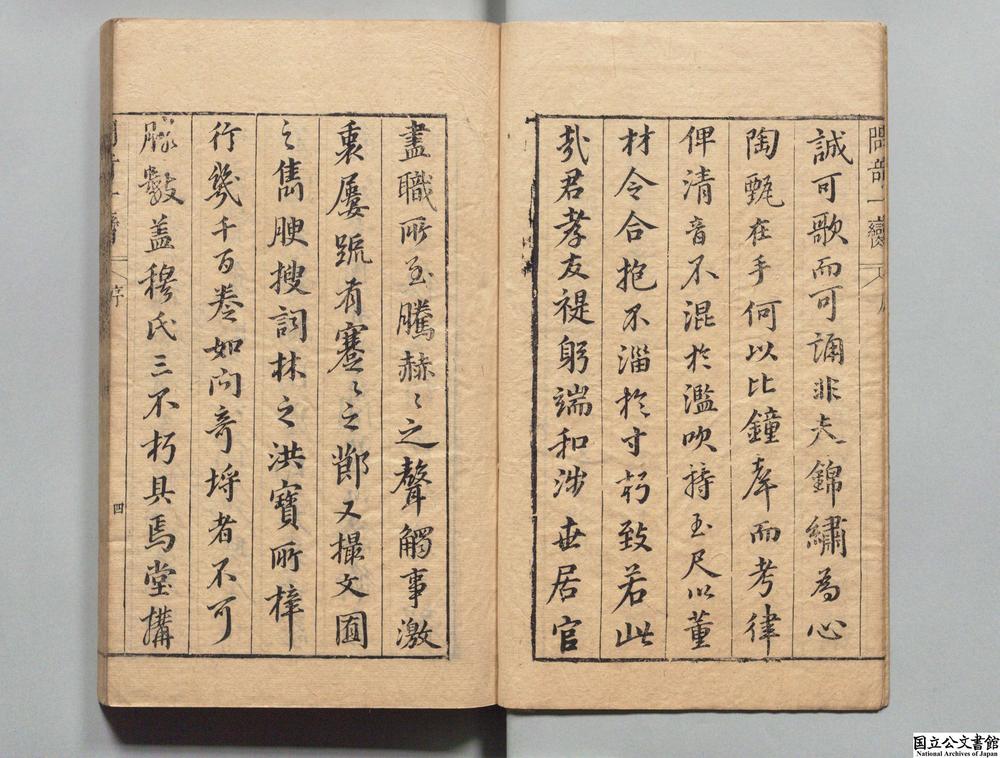 誠可歌而可誦非夫錦繡為心
陶甄在手何以比鐘牽而考律
俾清音不混於濫吹持玉尺以董
材令合抱不淄於寸朽致若此
哉君孝友禔躬端和涉世居官
盡職所至騰赫〻之聲觸事激
衷屢疏有蹇〻之節又撮文囿
之雋腴搜詞林之洪寶所梓
行幾千百卷如問奇埒者不可
勝數蓋穆氏三不朽具焉堂搆
序
四
国立公文書館
National Archives of Japan